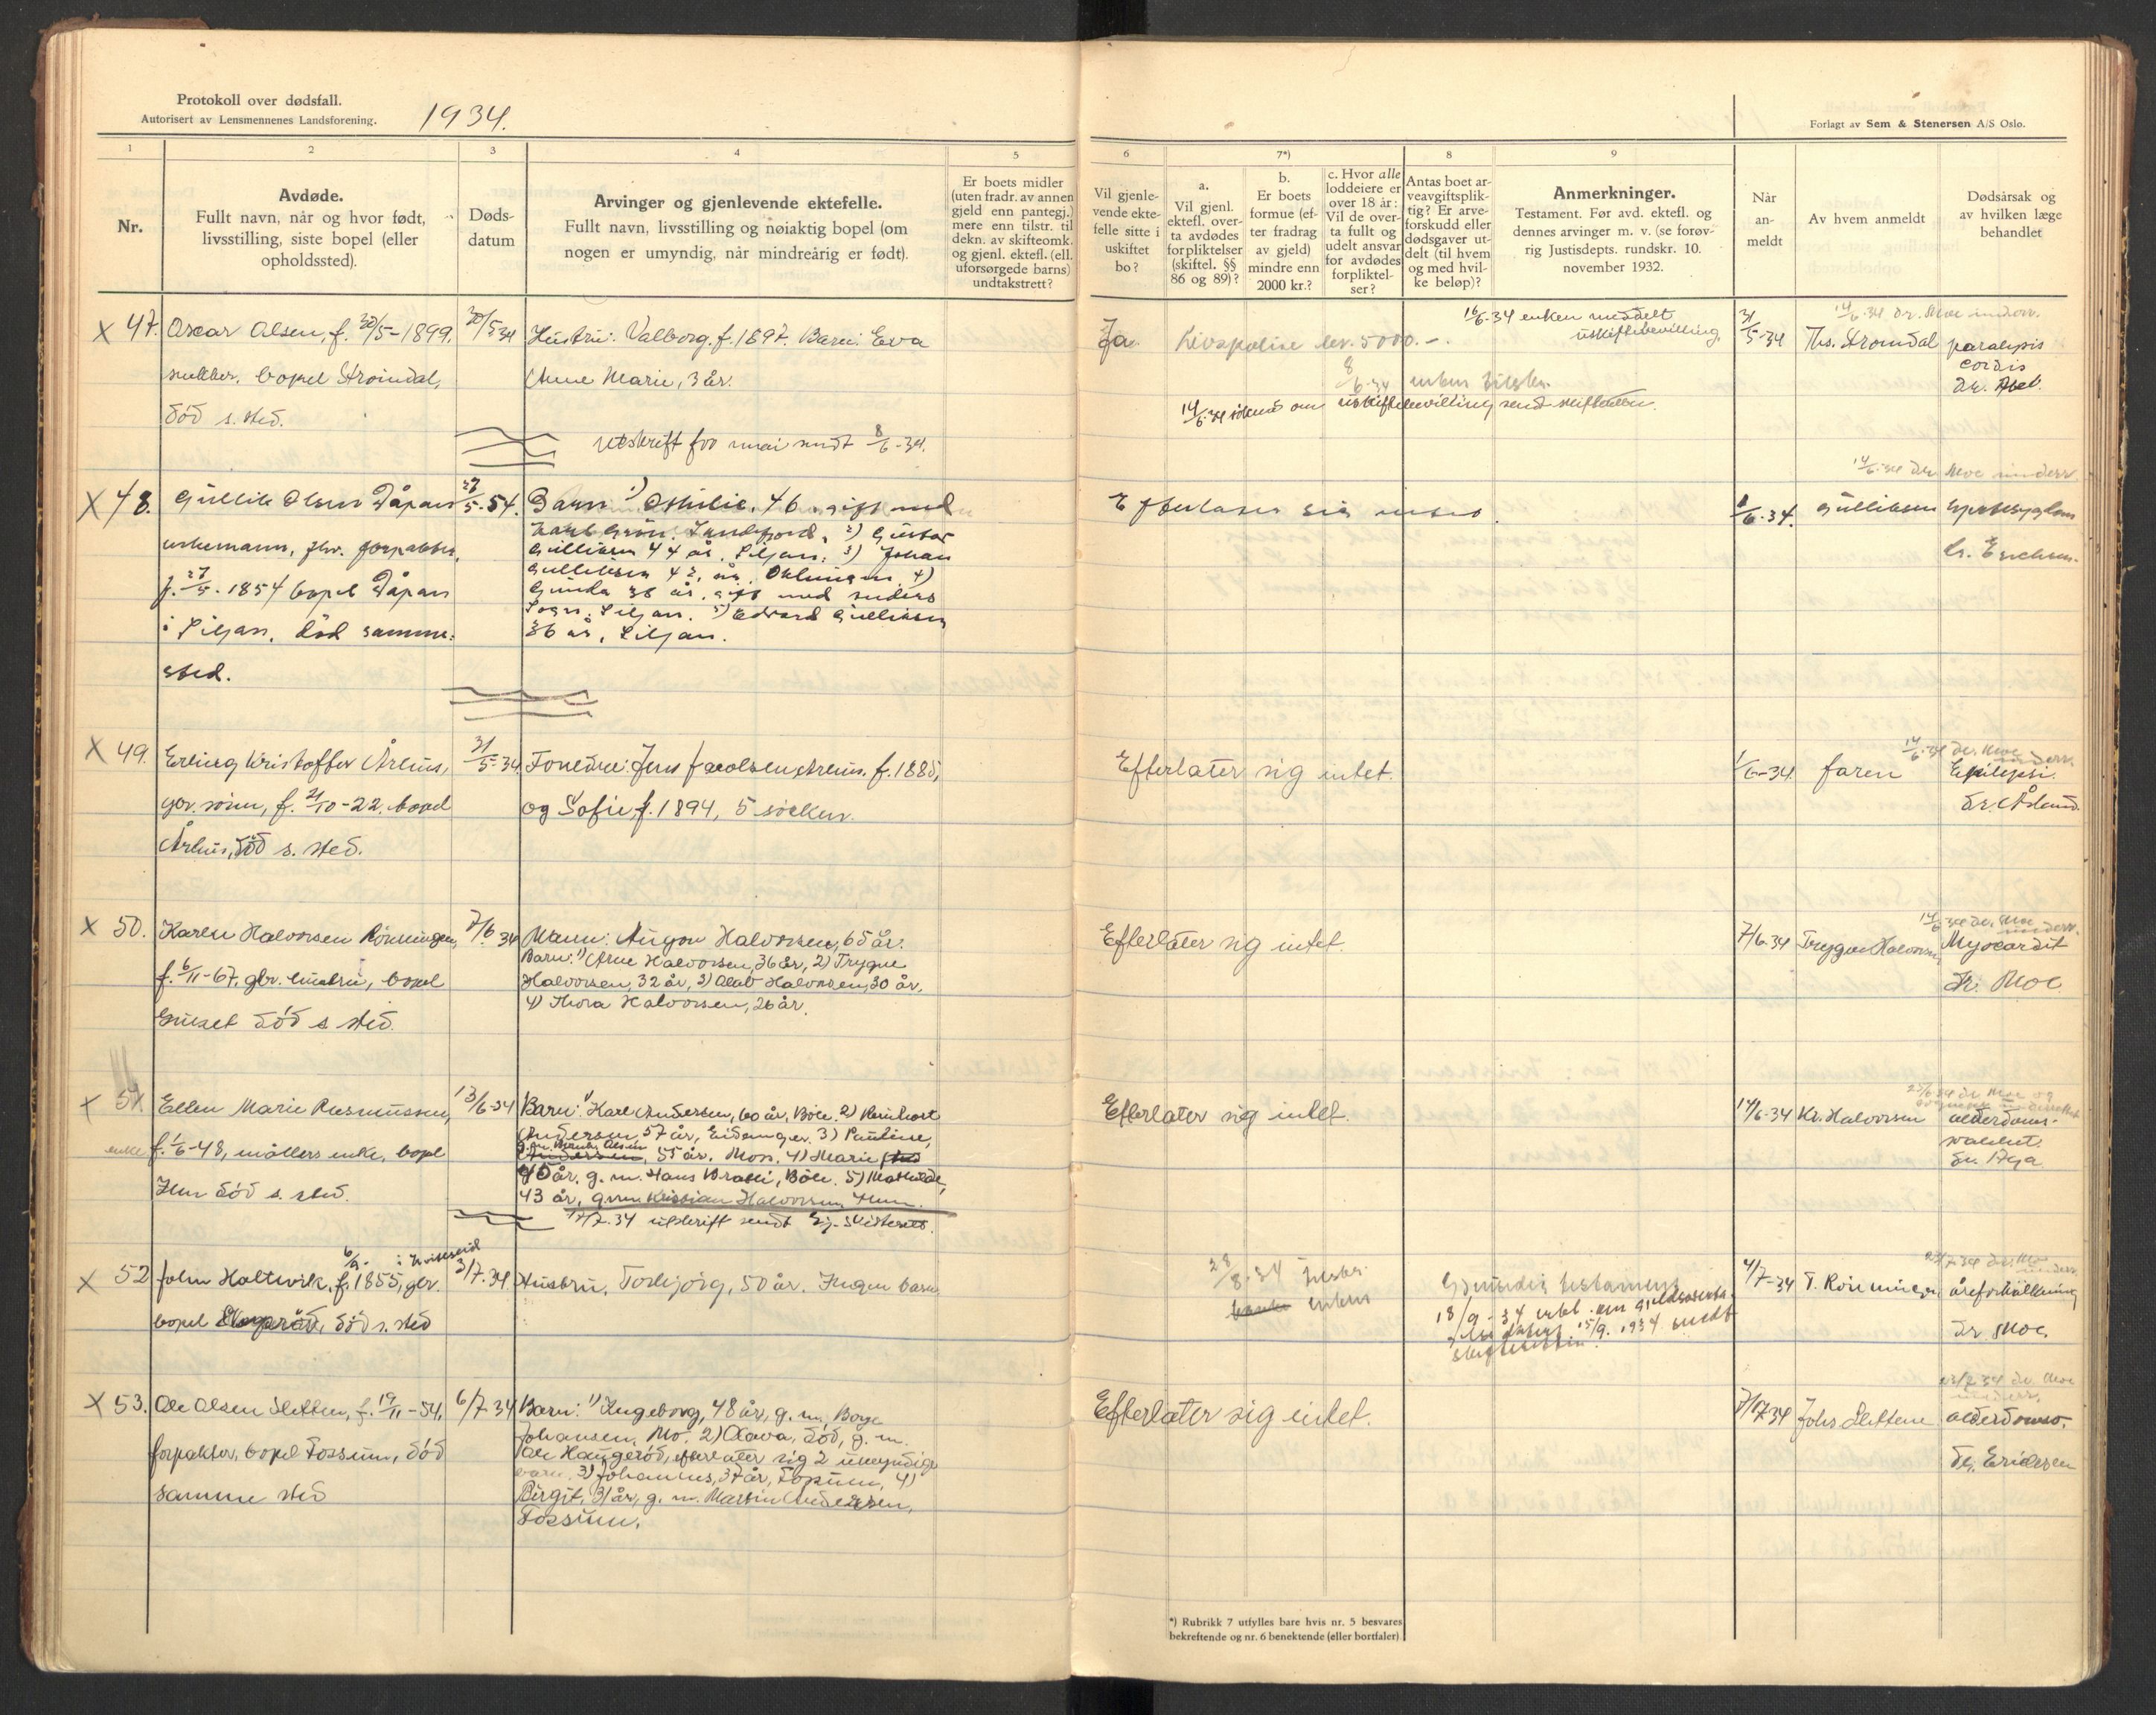 Protokoll over dødsfall.
Autorisert av Lensmennenes Landsforening.
1934.
Forlagt av Sem & Stenersen A/S Oslo.
1
2
3
4
5
6
7*)
8
9
Nr.
Avdøde.
Fullt navn, når og hvor født,
livsstilling, siste bopel (eller
opholdssted).
Døds-
datum
Arvinger og gjenlevende ektefelle.
Fullt navn, livsstilling og nøiaktig bopel (om
nogen er umyndig, når mindreårig er født).
Er boets midler
(uten fradr. av annen
gjeld enn pantegj.)
mere enn tilstr. til
dekn. av skifteomk.
og gjenl. ektefl. (ell.
uforsørgede barns)
undtakstrett?
Vil gjenle-
vende ekte-
felle sitte i
uskiftet
bo?
a.
Vil gjenl.
ektefl. over-
ta avdødes
forpliktelser
(skiftel. §§
86 og 89)?
b.
Er boets
formue (ef-
ter fradrag
av gjeld)
mindre enn
2000 kr.?
c. Hvor alle
loddeiere er
over 18 år:
Vil de over-
ta fullt og
udelt ansvar
for avdødes
forpliktel-
ser?
Antas boet ar-
veavgiftsplik-
tig? Er arve-
forskudd eller
dødsgaver ut-
delt (til hvem
og med hvil-
ke beløp)?
Anmerkninger.
Testament. Før avd. ektefl. og
dennes arvinger m. v. (se forøv-
rig Justisdepts. rundskr. 10.
november 1932.
Når
an-
meldt
Av hvem anmeldt
Dødsårsak og
av hvilken læge
behandlet
x 47. Oscar Olsen, f. 30/5-1899.
bopel Stromdal,
død s. sted.
30/5 34
Hustru: Valborg. f. 1897. Barn: Eva
Anne Marie, 3 år.
Utskrift for mai sendt 8/6-34.
Ja.
Livspolise kr. 5000.-.
16/6-34 enken meddelt
uskiftebevilling.
8/6-34 enken tilskr.
14/6-34 om uskiftebevilling sendt skifteretten.
31/5-34
Ths. Stromdal
14/6-34 dr. Moe underr.
paralysis
cordis
dr. Abel.
X 48. Gullik Olsen Dåpan
forpakter,
f. 27/5-1854 bopel Dåpan
i Siljan, død samme-
sted.
27/5-34.
Barn: 1) Othilie, 46, gift med
Sandefjord, 2) Gustav
Gulliksen 44 år, Siljan, 3) Johan
Gulliksen 42 år, 4)
Gunda 38 år, gift med Anders
Siljan. 5) Edvard Gulliksen
36 år, Siljan.
Efterlater sig intet.
1/6-34.
Gulliksen
14/6-34 dr. Moe underr.
dr. Erichsen.
X 49. Erling Kristoffer Århus,
gbr. sønn, f. 21/10-22. bopel
Århus, død s. sted.
31/5-34.
Foreldre: Jens Jacobsen Århus. f. 1885,
og Sofie, f. 1894, 5 søsken.
Efterlater sig intet.
1/6-34
faren
14/6-34 dr. Moe underr.
Epilepsi.
dr. Åslund.
X 50. Karen Halvorsen Rønningen,
f. 6/11-67, gbr. hustru, bopel
Gulset død s sted.
7/6 34
Mann: Halvorsen, 65 år.
Barn: 1) Arne Halvorsen, 36 år, 2) Trygve
Halvorsen, 32 år, 3) Olav Halvorsen, 30 år,
4) Thora Halvorsen, 26 år.
Efterlater sig intet.
7/6-34
Trygve Halvorsen
14/6-34 dr. Moe underr.
Myocardit
Dr. Moe
x 51. Ellen Marie Rasmussen,
enke f. 1/6-48, møllers enke, bopel
død s. sted.
13/6-34
Barn: 1) Karl Andersen, 60 år, Bøle. 2) Reinhart
Andersen, 57 år, Eidanger. 3) Pauline,
55 år, Moss, 4) Marie
45 år, g. m. Hans Bøle. 5) Mathilde,
43 år, g. m. Kristian Halvorsen,
17/7-34 utskrift sendt skifterett.
Efterlater sig intet
14/6-34
Kr. Halvorsen
alderdoms-
svakhet.
x 52 John Holtvik, f. 6/9-1855, gbr.
i Kviteseid
bopel død s. sted
3/7-34
Hustru, Torbjörg, 50 år. Ingen barn
28/8-34 tilskr.
enken
Gjensidig testament
18/9-34
15/9. 1934 sendt
skifteretten.
4/7-34
T. Rönningen
åreforkalkning
dr. Moe.
X 53. Ole Olsen Sletten, f. 19/11-54,
forpakter, bopel Fossum, død
samme sted
6/7-34
Barn: 1) Ingeborg, 48 år, g. m. Borge
Johansen, Mo. 2) Olava, död, g. m.
Ole Haugeröd, efterlater sig 2 umyndige
barn. 3) Johannes, 37 år, Fossum, 4)
Birgit, 31 år, g. m. Martin Andersen,
Fossum.
Efterlater sig intet.
7/7 34
Johs Sletten
alderdoms-
dr. Ericksen
*) Rubrikk 7 utfylles bare hvis nr. 5 besvares
bekreftende og nr. 6 benektende (eller bortfaler)